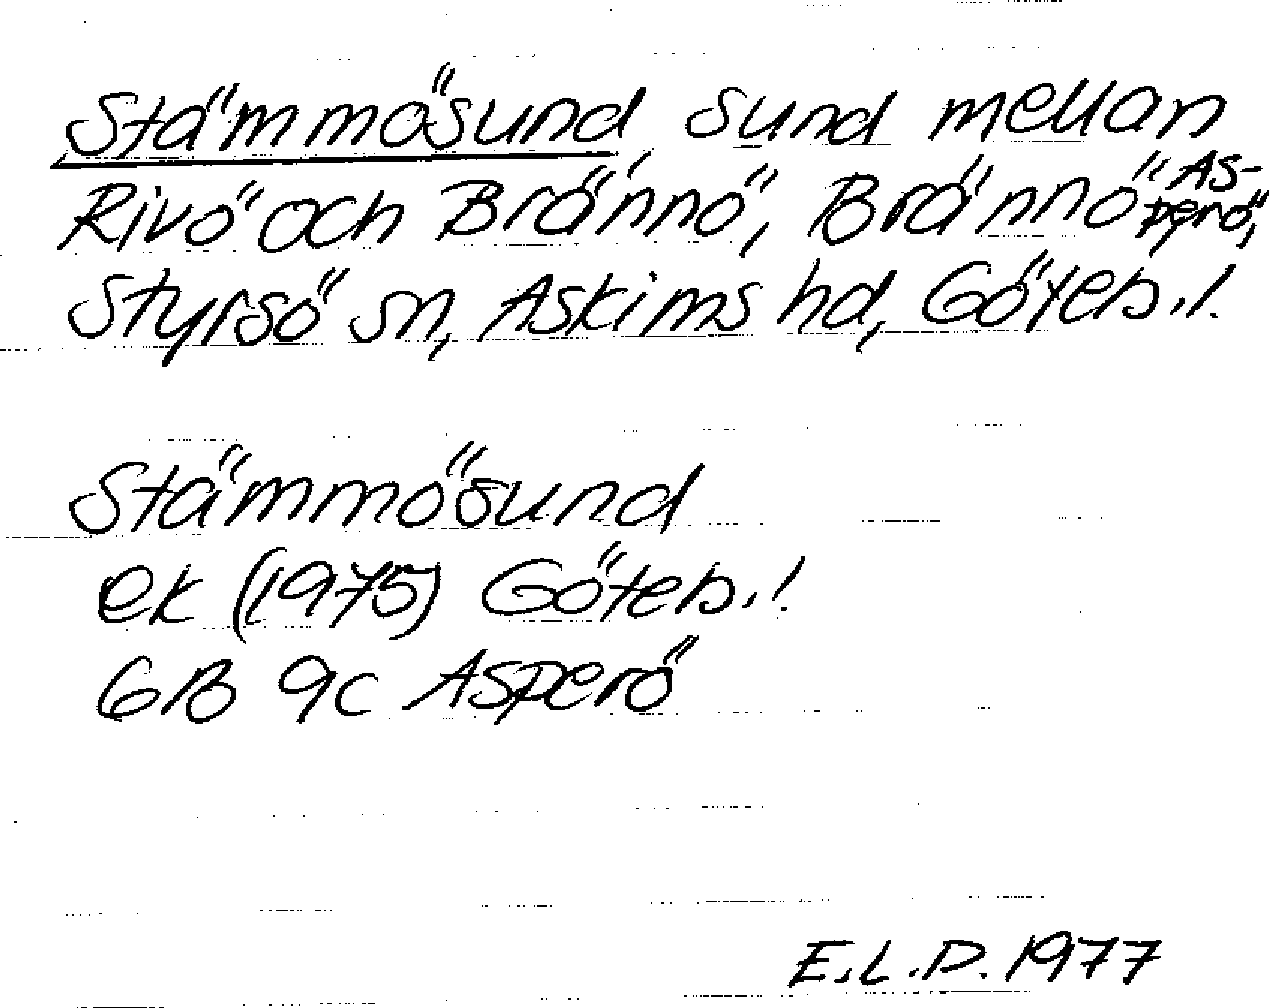 Stämmösund, sund mellan
Rivö och Brännö, Brännö, Asperö,
Styrsö sn, Askims hd, Göteb. l.
Stämmösund
ek (1975) Göteb. l.
6B 9c Asperö
E.L.P. 1977